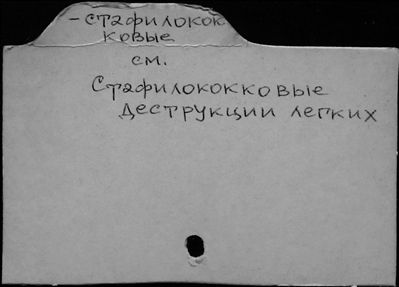 - стафилокок
ковые
см.
Стафилококковые
деструкции легких